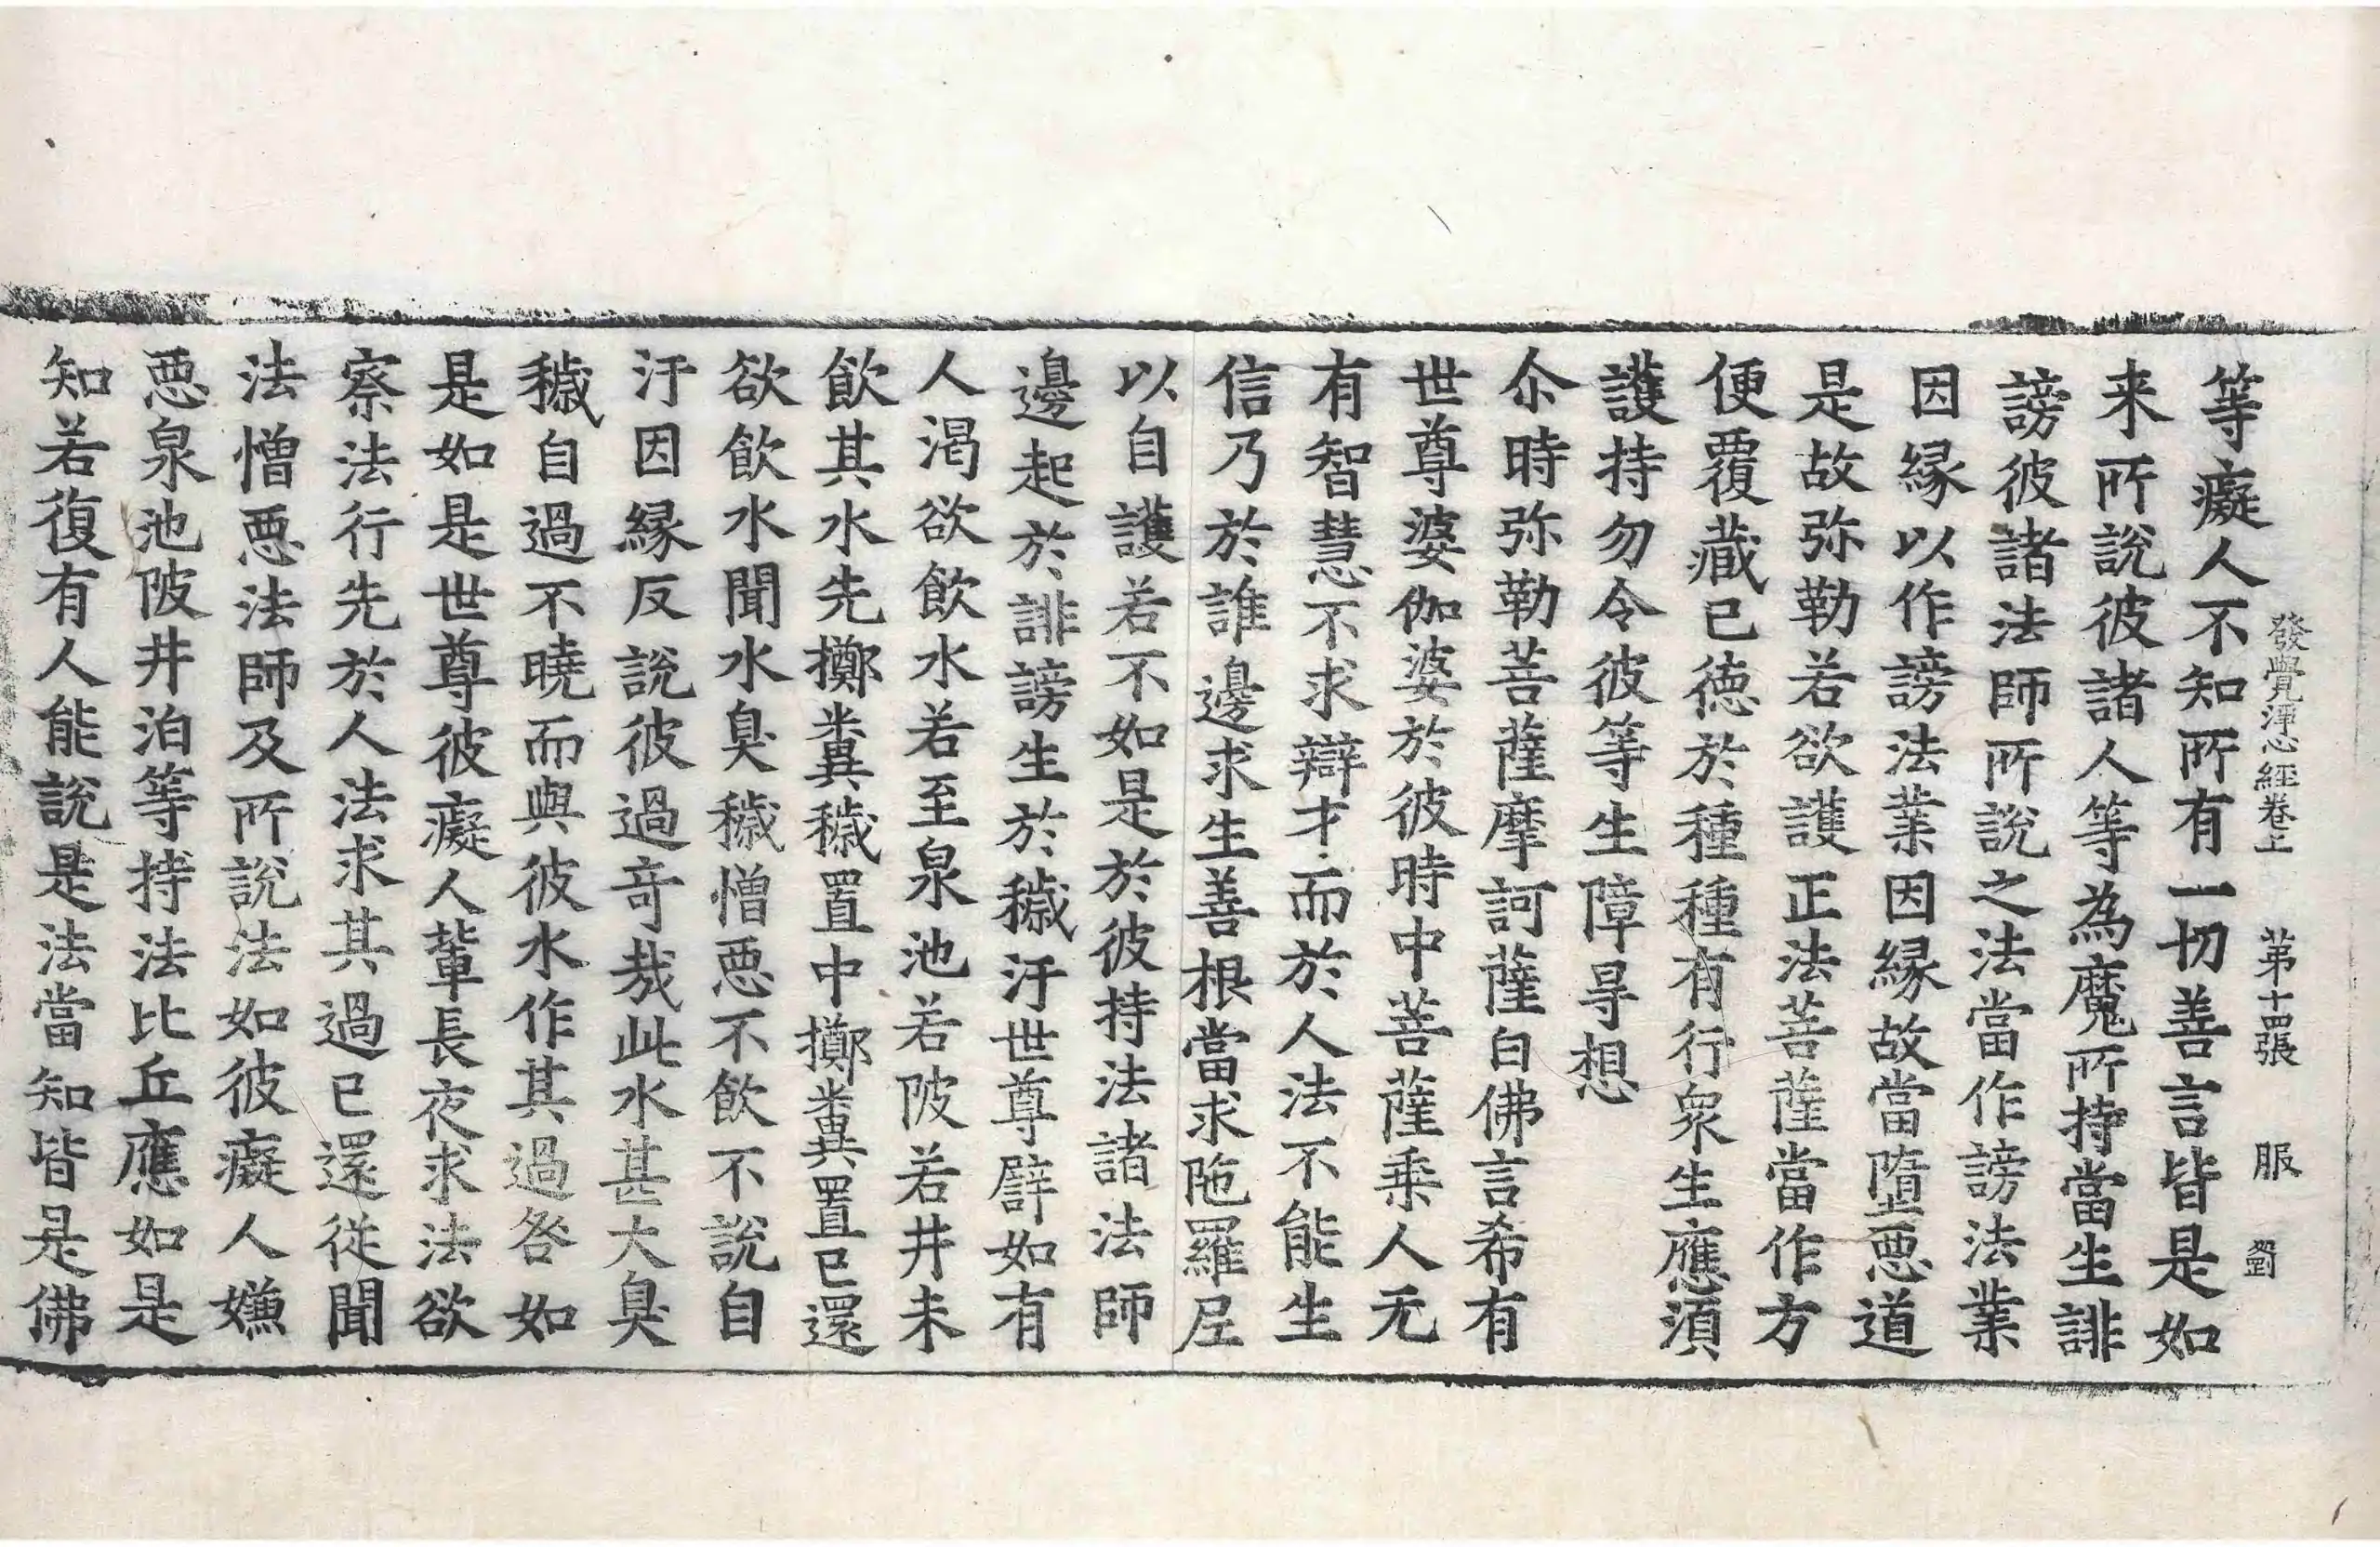 發覺淨心經卷上　第十四張　服　劉
等癡人不知所有一切善言皆是如
来所說彼諸人等為魔所持當生誹
謗彼諸法師所說之法當作謗法業
因縁以作謗法業因縁故當墮惡道
是故弥勒若欲護正法菩薩當作方
便覆藏已德於種種有行衆生應須
護持勿令彼等生障㝵想
尒時弥勒菩薩摩訶薩白佛言希有
世尊婆伽婆於彼時中菩薩乘人无
有智慧不求辯才而於人法不能生
信乃於誰邊求生善根當求陁羅尼
以自護若不如是於彼持法諸法師
邊起於誹謗生於穢汙世尊譬如有
人渴欲飲水若至泉池若陂若井未
飲其水先擲糞穢置中擲糞置已還
欲飲水聞水臭穢憎惡不飲不說自
汙因縁反說彼過奇哉此水甚大臭
穢自過不曉而與彼水作其過咎如
是如是世尊彼癡人輩長夜求法欲
察法行先於人法求其過已還從聞
法憎惡法師及所說法如彼癡人嫌
惡泉池陂井泊等持法比丘應如是
知若復有人能說是法當知皆是佛